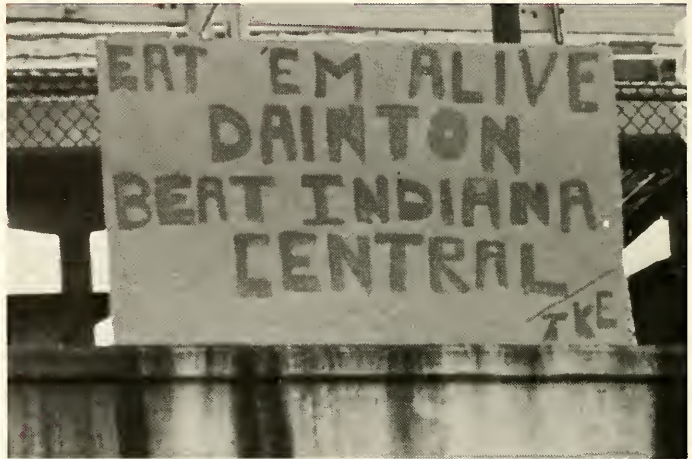 EAT 'EM ALIVE
DAINTON
BEAT INDIANA
CENTRAL
TKE